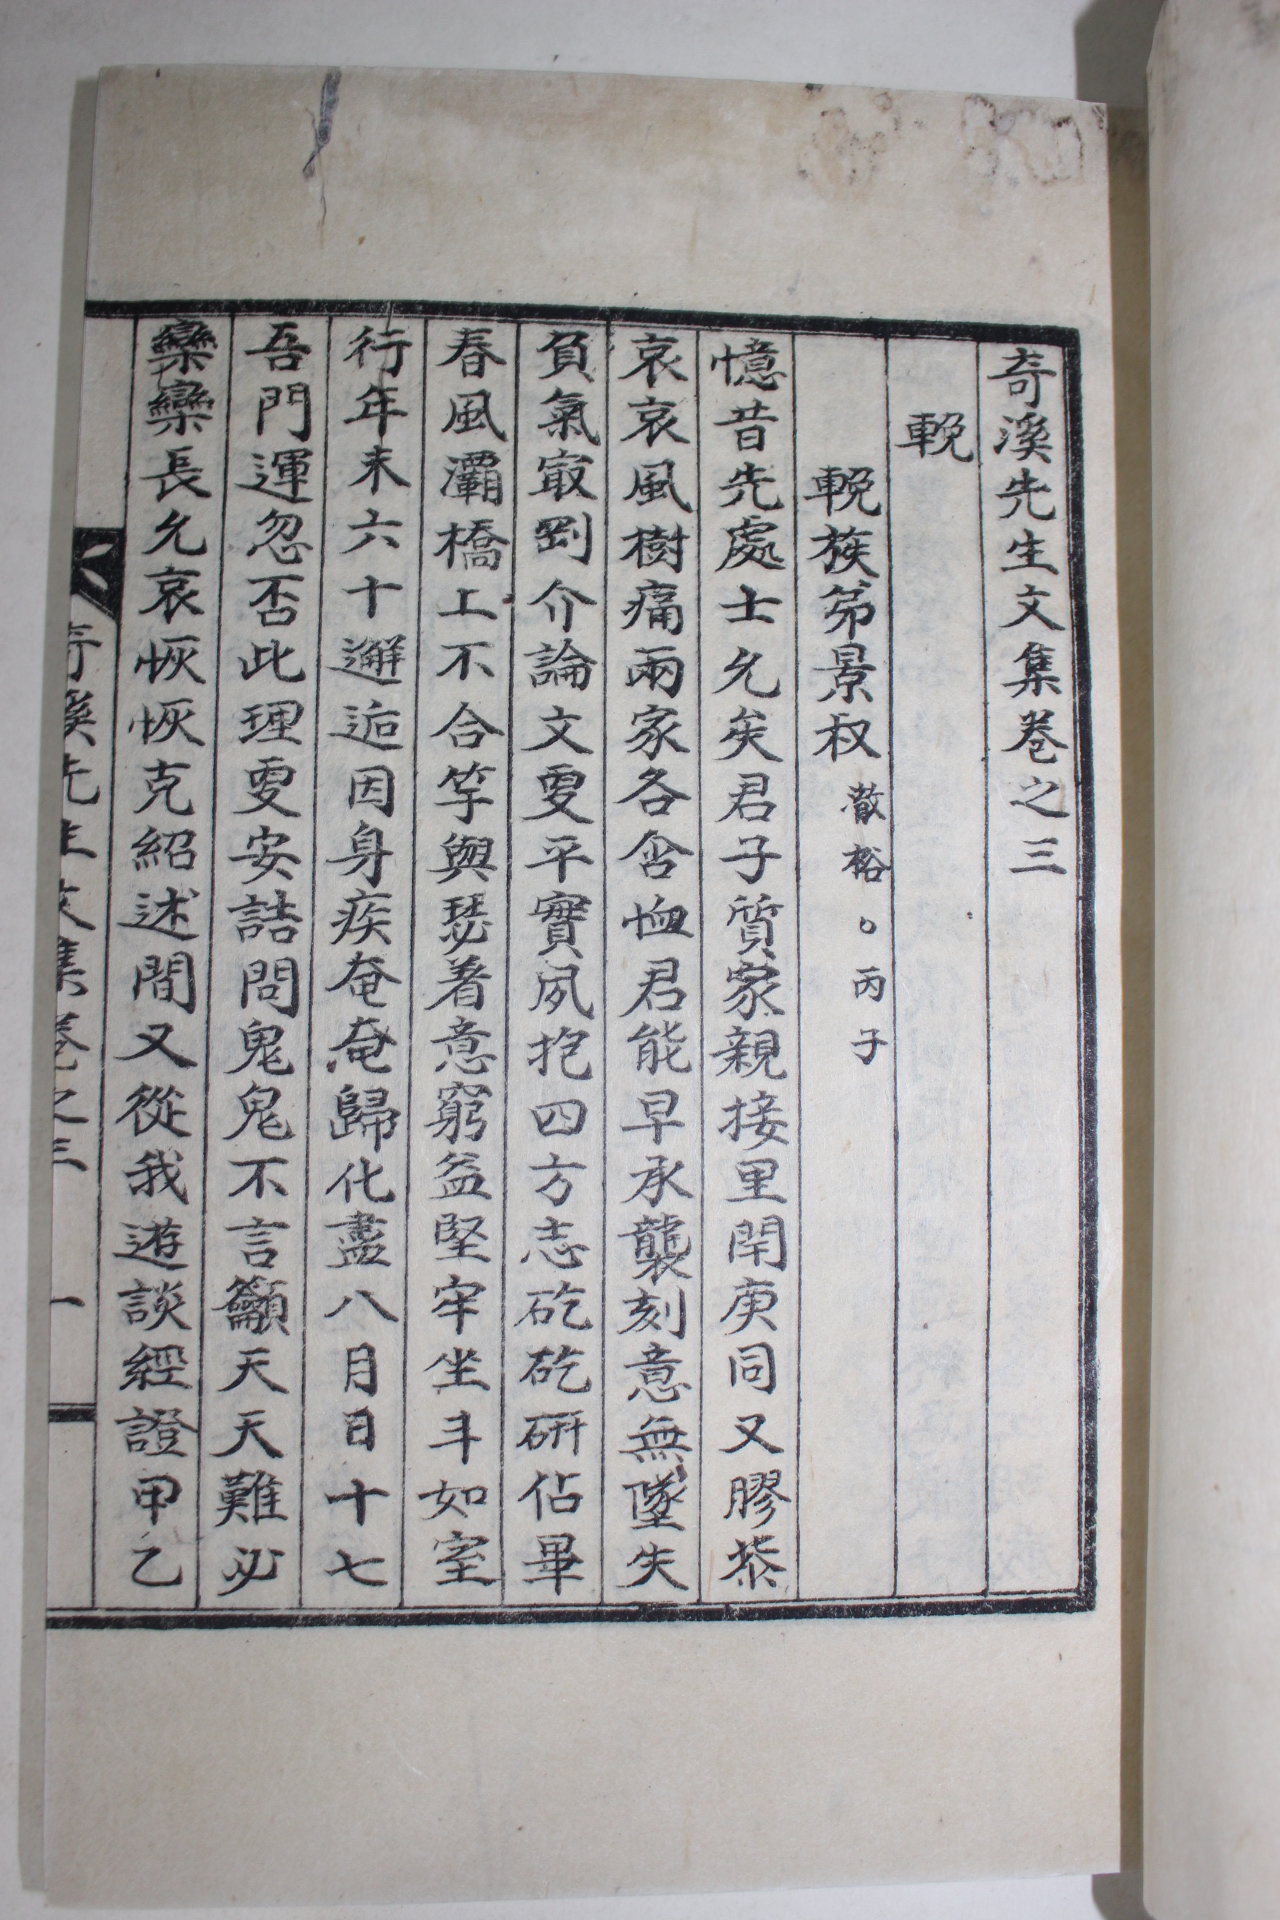 奇溪先生文集卷之三
輓
輓族弟景叔 澈裕○丙子
憶昔先處士允矣君子質家親接里閈庚同又膠桼
哀哀風樹痛兩家各含恤君能早承襲刻意無墜失
負氣㝡剛介論文更平實夙抱四方志矻矻硏佔畢
春風灞橋上不合竽與瑟着意窮益堅牢坐斗如室
行年未六十邂逅因身疾奄奄歸化盡八月日十七
吾門運忽否此理更安詰問鬼鬼不言籲天天難必
欒欒長允哀恢恢克紹述間又從我遊談經證甲乙
奇溪先生文集卷之三 一